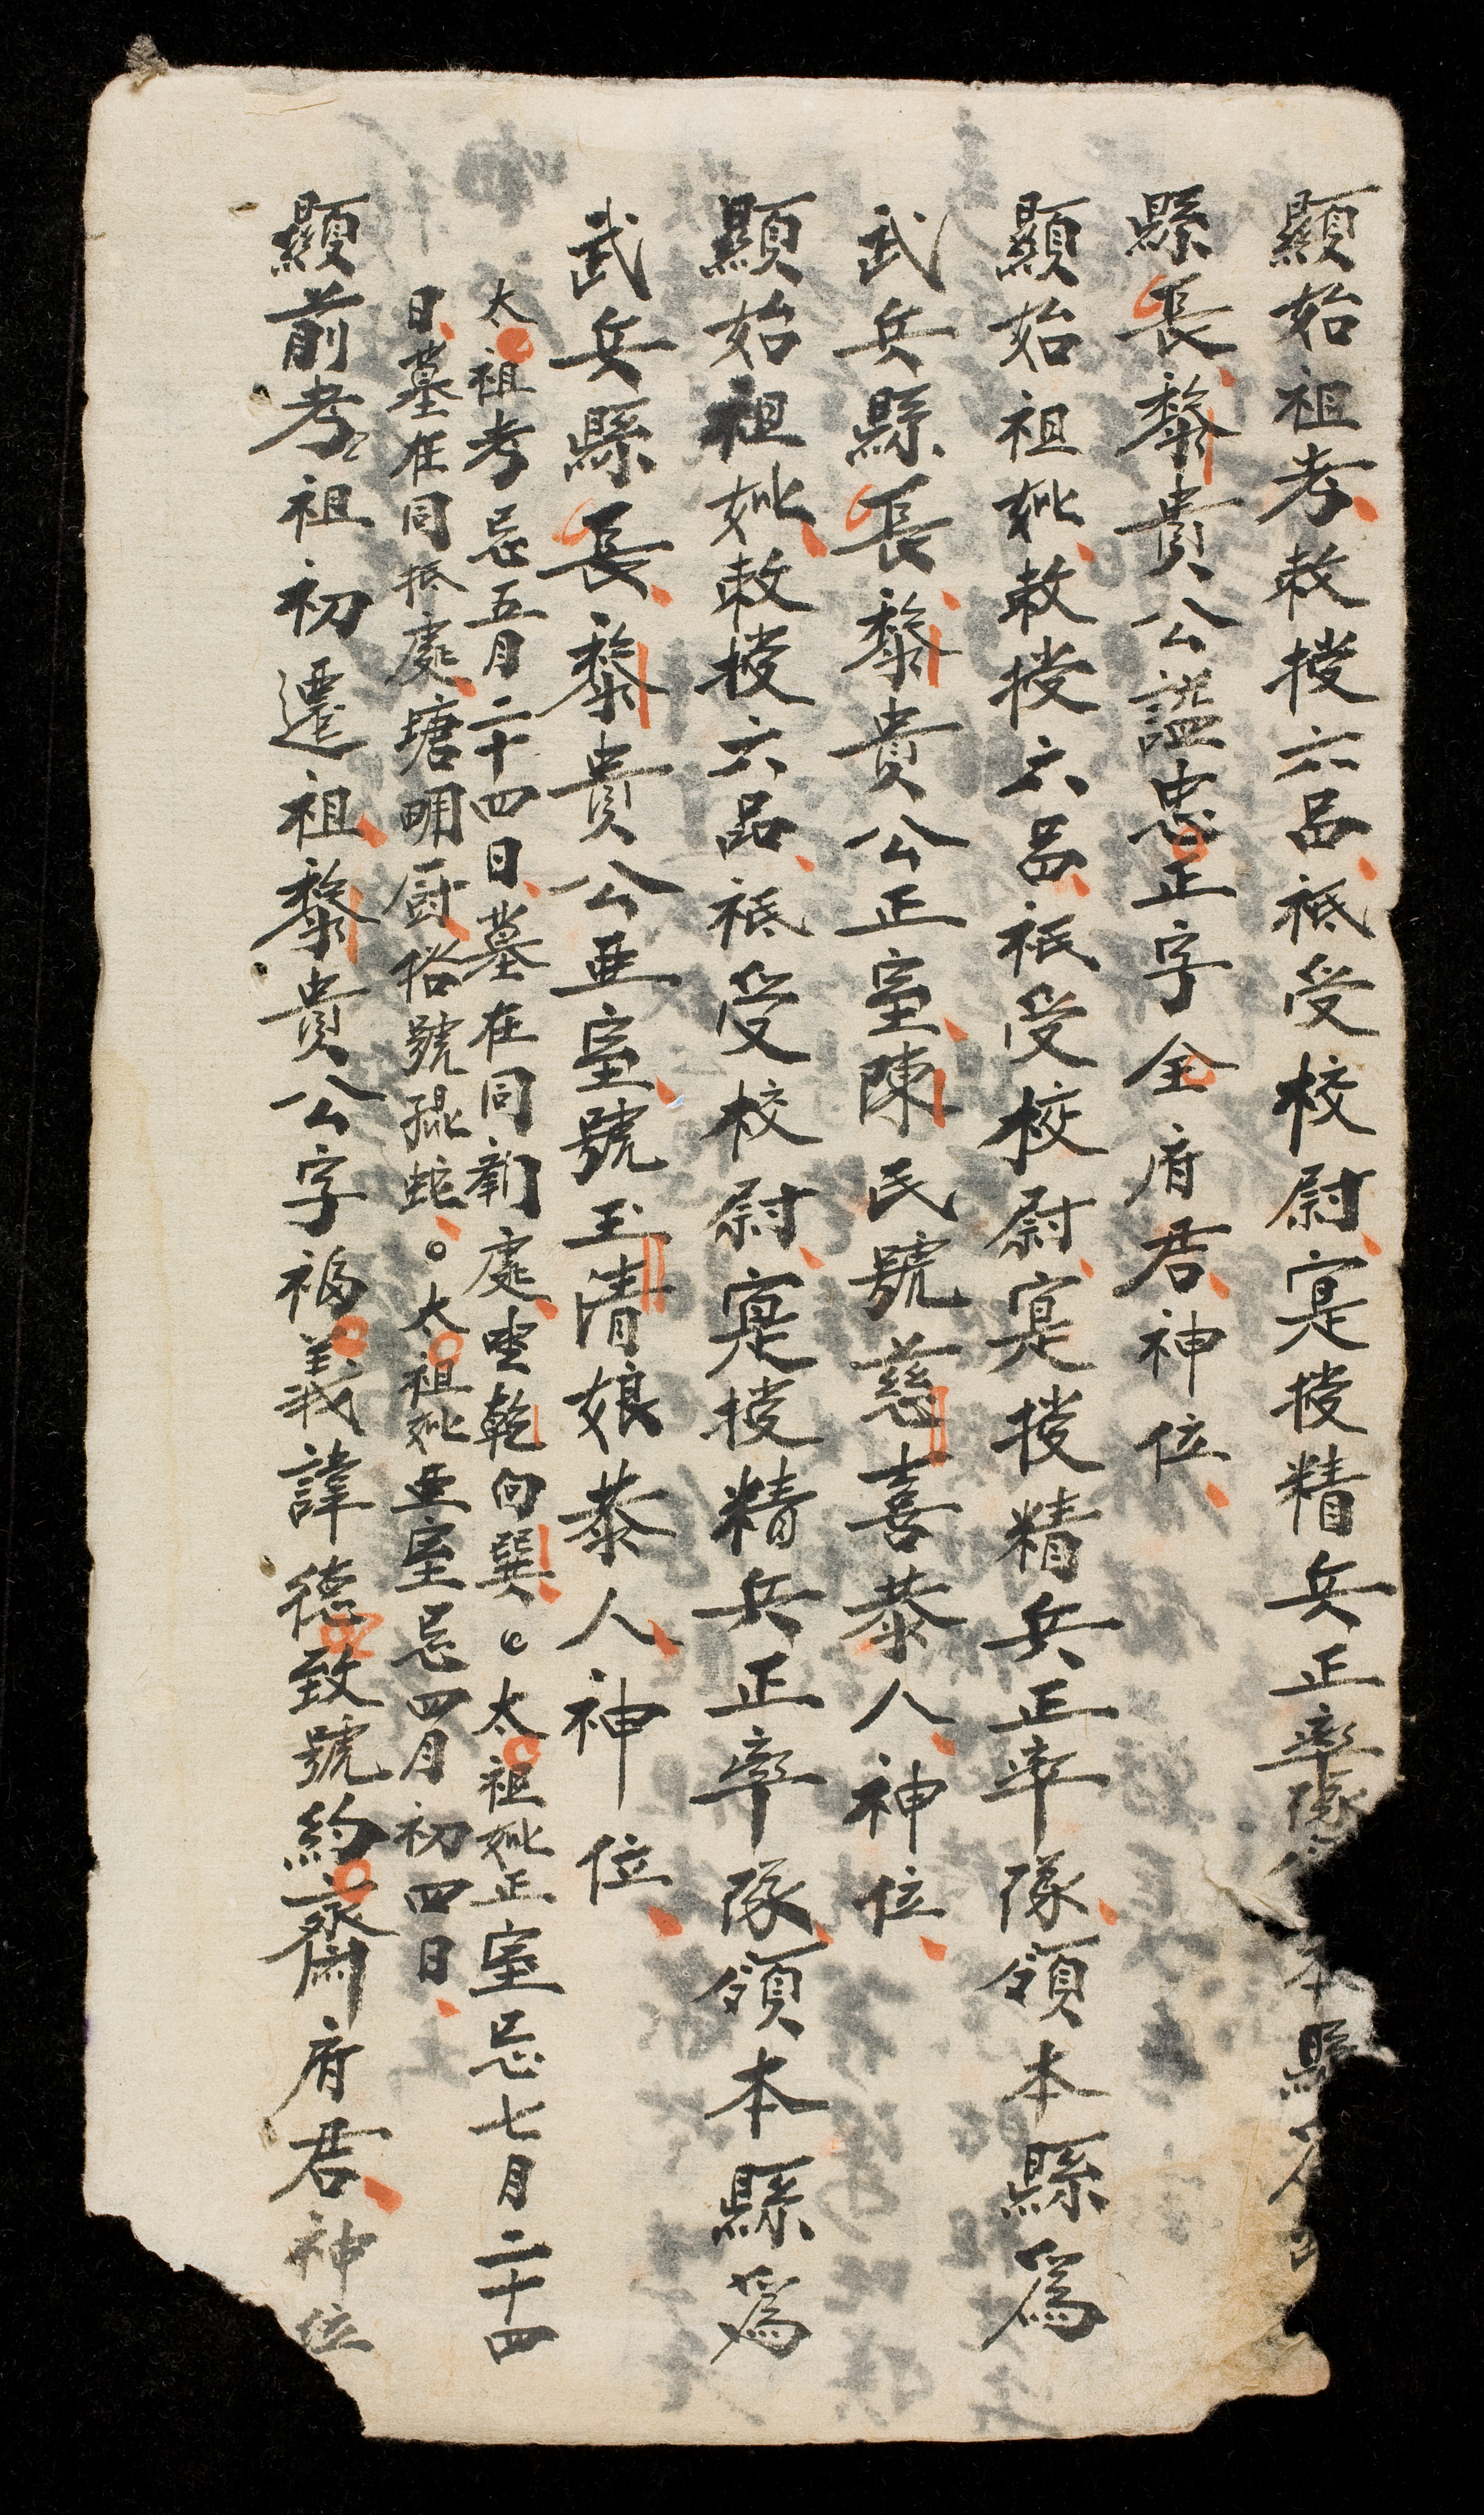 顯始祖考敕授六品祗受校尉寔授精兵正率隊本縣
縣長黎貴公諡忠正字全府君神位
顯始祖妣敕授六品祗受校尉寔授精兵正率隊領本縣爲
武兵縣長黎貴公正室陳氏號慈喜恭人神位
顯始祖妣敕授六品祗受校尉寔授精兵正率隊領本縣爲
武兵縣長黎貴公亞室號玉清娘恭人神位
太祖考忌五月二十四日墓在同新處坐乾向巽。太祖妣正室忌七月二十四
日墓在同抵處塘明厨俗號混蛇。太祖妣亞室忌四月初四日
顯前考々祖初遷祖黎貴公字福義諱德致號約齋府君神位